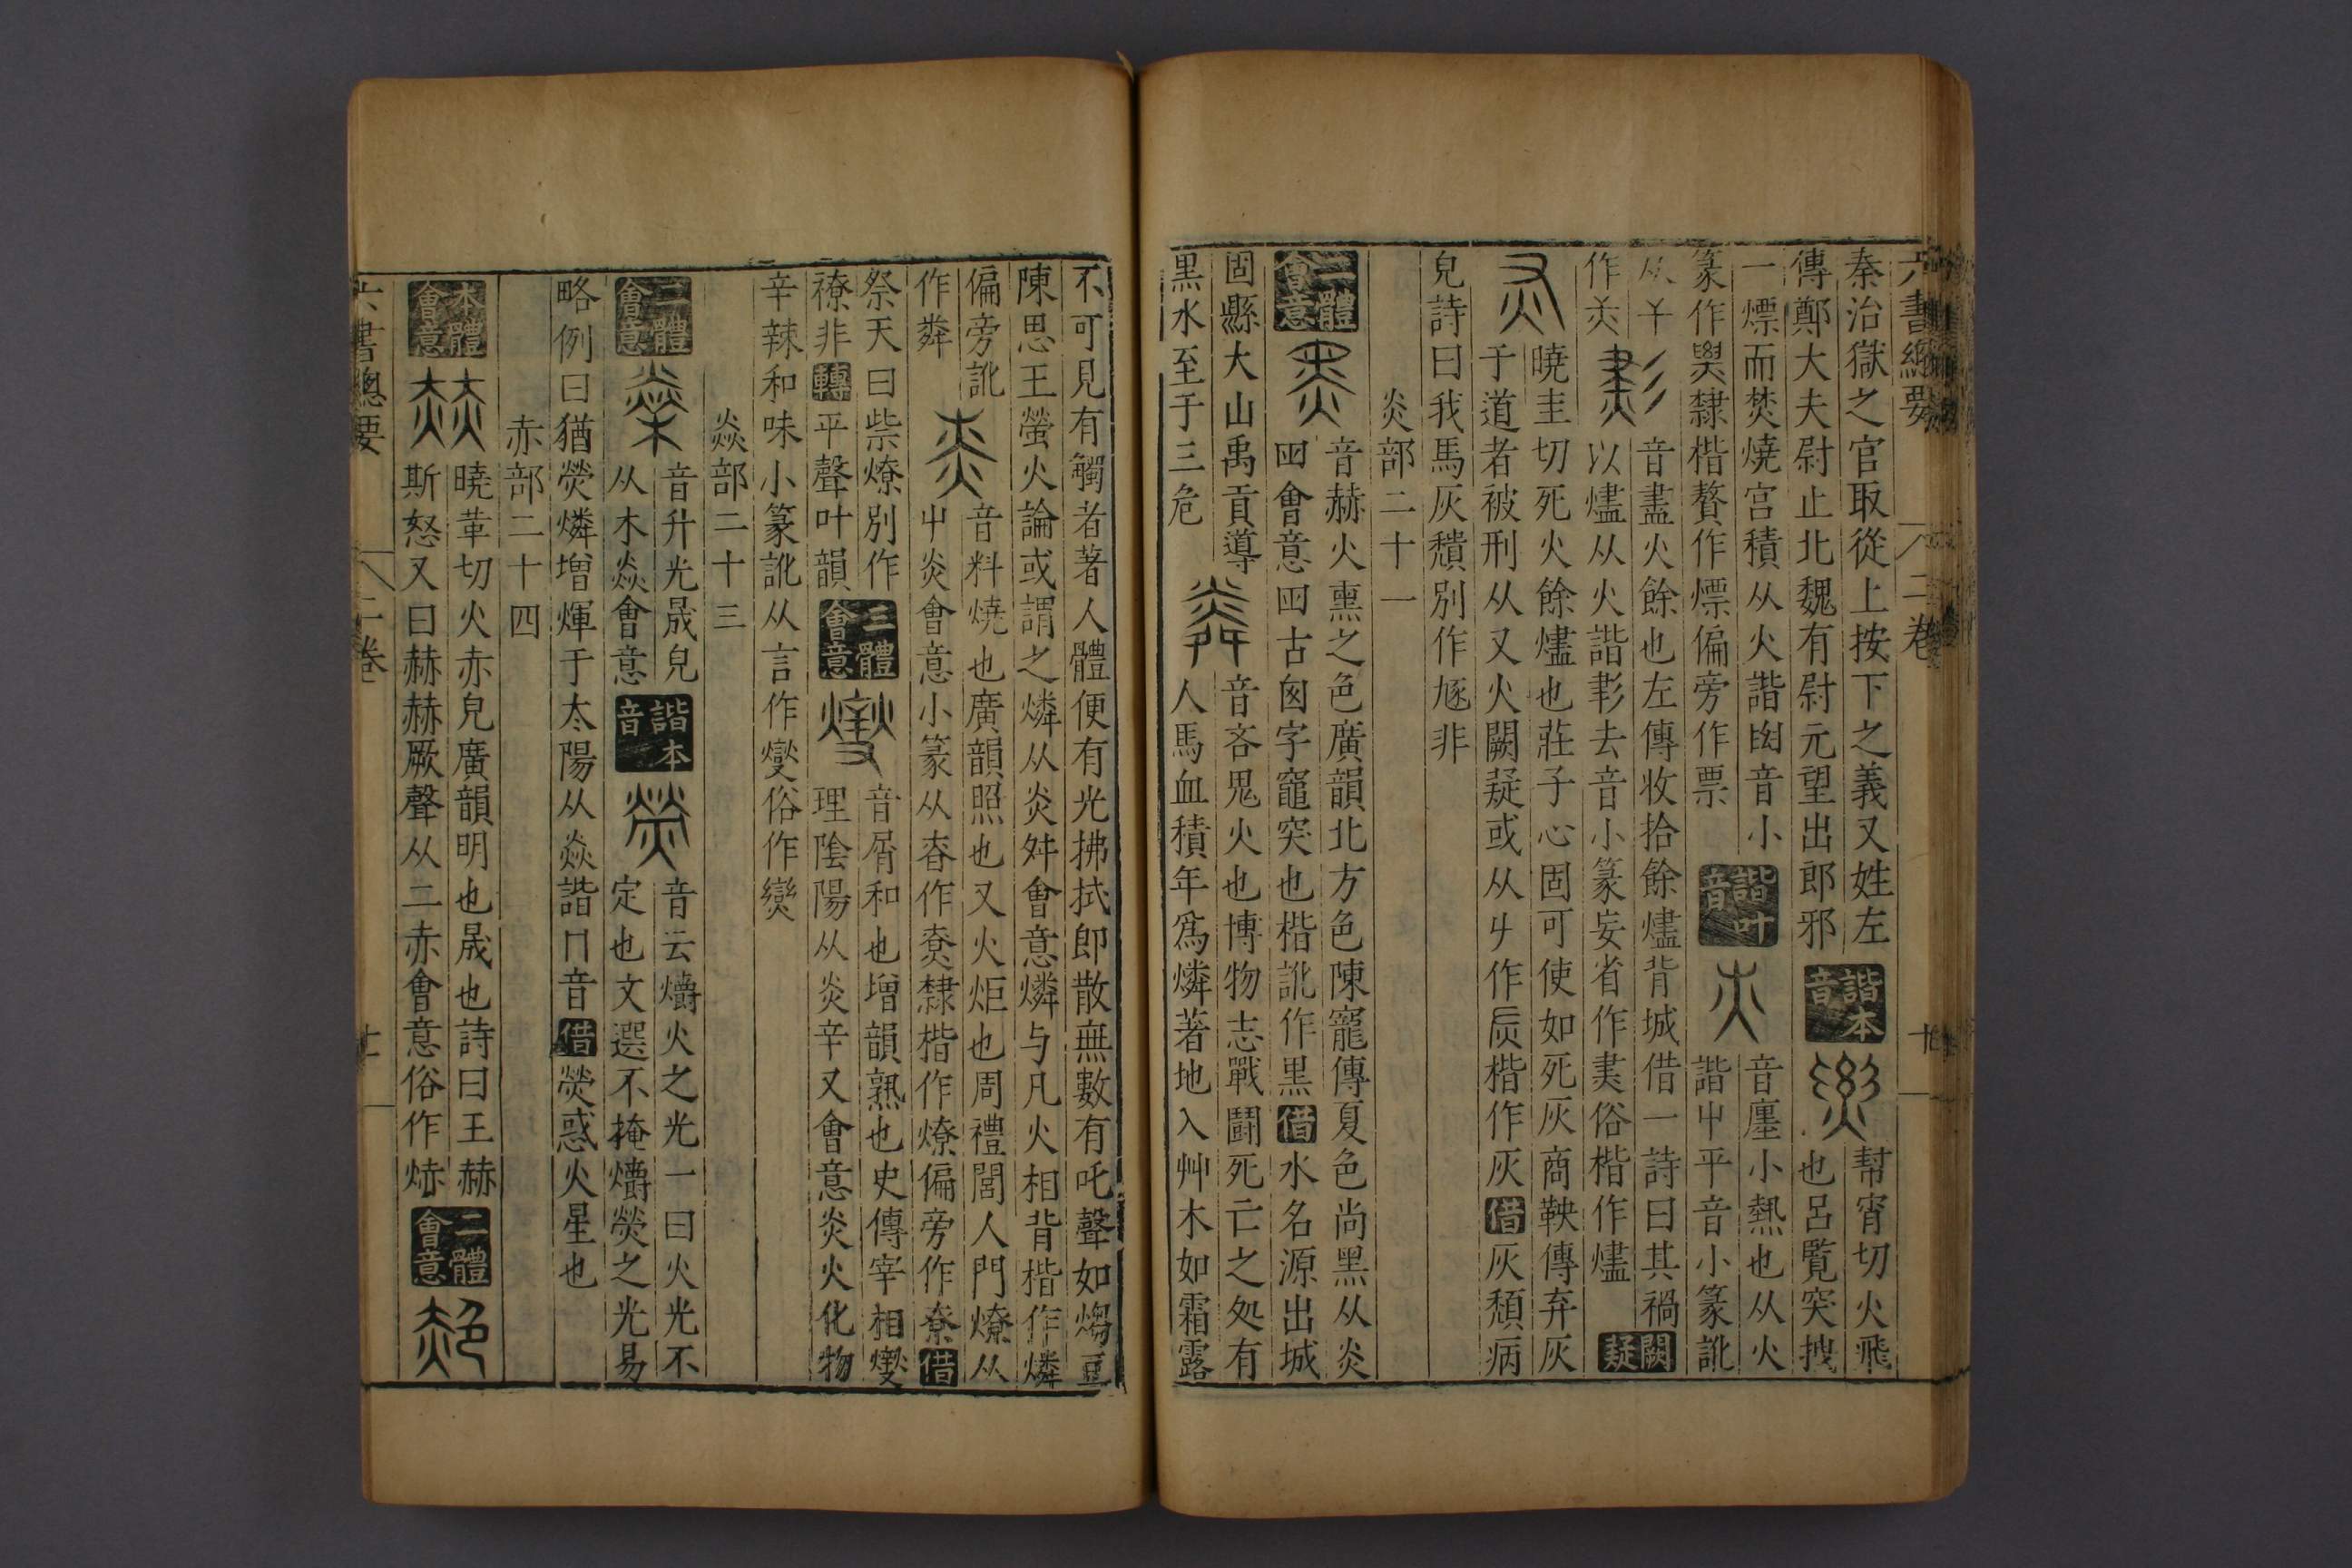 六書總要 二卷
秦治獄之官取從上按下之義又姓左
傳鄭大夫尉止北魏有尉元望出郎邪
諧本音
幫宵切火飛
也呂覽突拽
一熛而焚燒宮積从火諧囟音小
篆作㷠隸楷贅作熛偏旁作票
諧叶音
音廛小熱也从火
諧屮平音小篆訛
从𢆉
作灷
音盡火餘也左傳收拾餘燼背城借一詩曰其禍
以燼从火諧㣇去音小篆妄省作㶳俗楷作燼
闕疑
曉圭切死火餘燼也莊子心固可使如死灰商鞅傳弃灰
于道者被刑从又火闕疑或从𠂇作𤆄楷作灰借灰頹病
皃詩曰我馬灰穨別作尵非
炎部二十一
二體會意
音赫火熏之色廣韻北方色陳寵傳夏色尚黑从炎
囧會意囧古囪字竈突也楷訛作黑借水名源出城
固縣大山禹貢導
黑水至于三危
音吝鬼火也博物志戰鬭死亡之处有
人馬血積年爲燐著地入艸木如霜露
不可見有觸者著人體便有光拂拭即散無數有吒聲如煼豆
陳思王螢火論或謂之燐从炎舛會意燐与凡火相背楷作燐
偏旁訛
作粦
音料燒也廣韻照也又火炬也周禮閽人門燎从
屮炎會意小篆从昚作尞隸楷作燎偏旁作尞借
祭天曰祡燎別作
禷非轉平聲叶韻
三體會意
音屑和也增韻熟也史傳宰相燮
理陰陽从炎辛又會意炎火化物
辛辣和味小篆訛从言作燮俗作爕
焱部二十三
二體會意
音升光晟皃
从木焱會意
諧本音
音云爝火之光一曰火光不
定也文選不掩爝熒之光易
略例曰猶熒燐增輝于太陽从焱諧冂音借熒惑火星也
赤部二十四
本體會意
曉革切火赤皃廣韻明也晟也詩曰王赫
斯怒又曰赫赫厥聲从二赤會意俗作焃
二體會意
六書總要 二卷